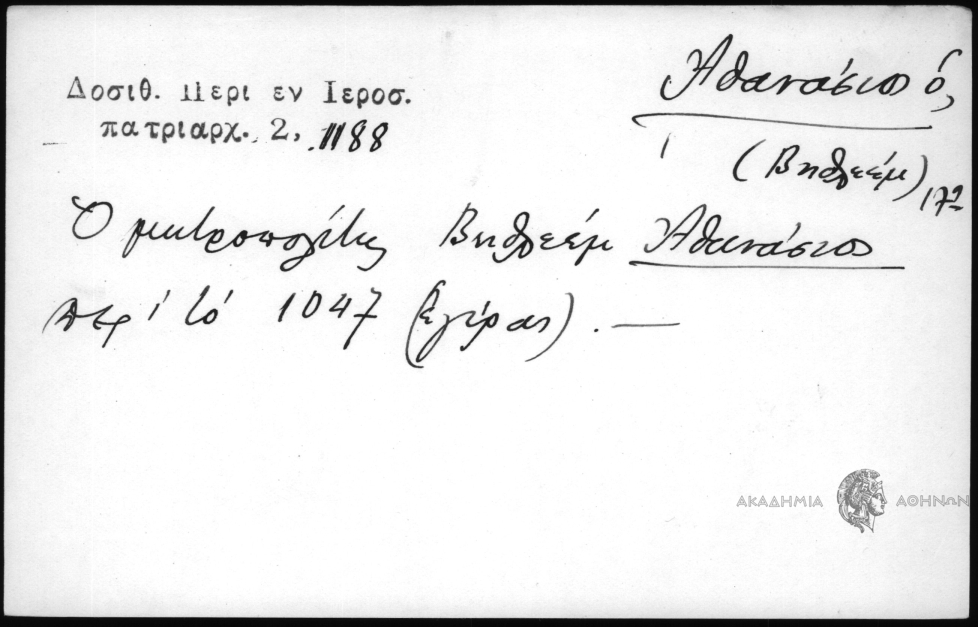 Δοσιθ. Περι εν Ιεροσ.
πατριαρχ. 2, 1188
Ἀθανάσιος ὁ,
(Βηθλεέμ) 17ος
Ὁ μητροπολίτης Βηθλεέμ Ἀθανάσιος
περί τό 1047 (Ἐγίρας). —
ΑΚΑΔΗΜΙΑ ΑΘΗΝΩΝ